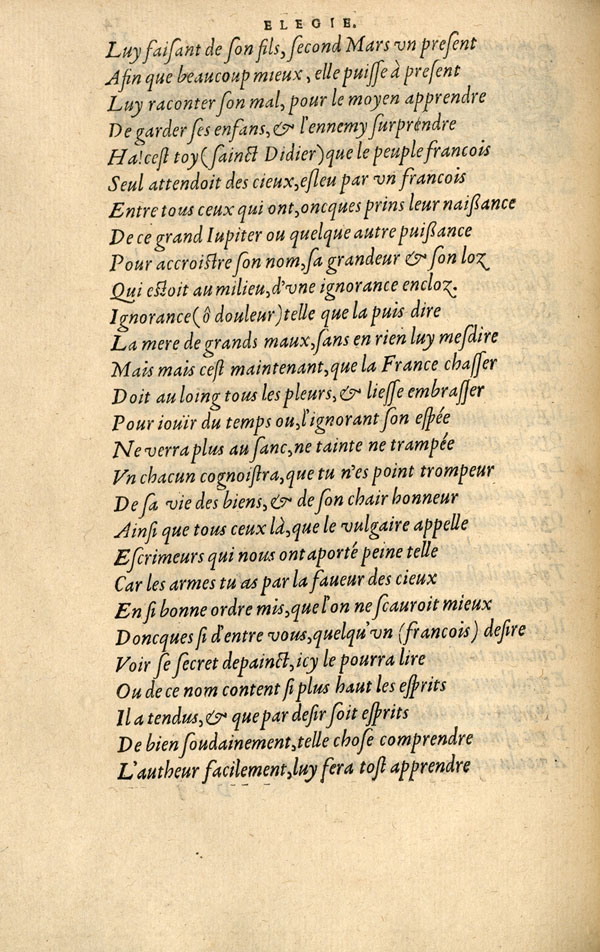 ELEGIE.
Luy faisant de son fils, second Mars vn present
Afin que beaucoup mieux, elle puisse à present
Luy raconter son mal, pour le moyen apprendre
De garder ses enfans, & l'ennemy surprendre
Ha! cest toy (sainct Didier) que le peuple francois
Seul attendoit des cieux, esleu par vn francois
Entre tous ceux qui ont, oncques prins leur naißance
De ce grand Iupiter ou quelque autre puißance
Pour accroistre son nom, sa grandeur & son loz
Qui estoit au milieu, d'vne ignorance encloz.
Ignorance (ô douleur) telle que la puis dire
La mere de grands maux, sans en rien luy mesdire
Mais mais cest maintenant, que la France chasser
Doit au loing tous les pleurs, & liesse embrasser
Pour iouïr du temps ou, l'ignorant son espée
Ne verra plus au sanc, ne tainte ne trampée
Vn chacun cognoistra, que tu n'es point trompeur
De sa vie des biens, & de son chair honneur
Ainsi que tous ceux là, que le vulgaire appelle
Escrimeurs qui nous ont aporté peine telle
Car les armes tu as par la faueur des cieux
En si bonne ordre mis, que l'on ne scauroit mieux
Doncques si d'entre vous, quelqu'vn (francois) desire
Voir se secret depainct, icy le pourra lire
Ou de ce nom content si plus haut les esprits
Il a tendus, & que par desir soit esprits
De bien soudainement, telle chose comprendre
L'autheur facilement, luy fera tost apprendre